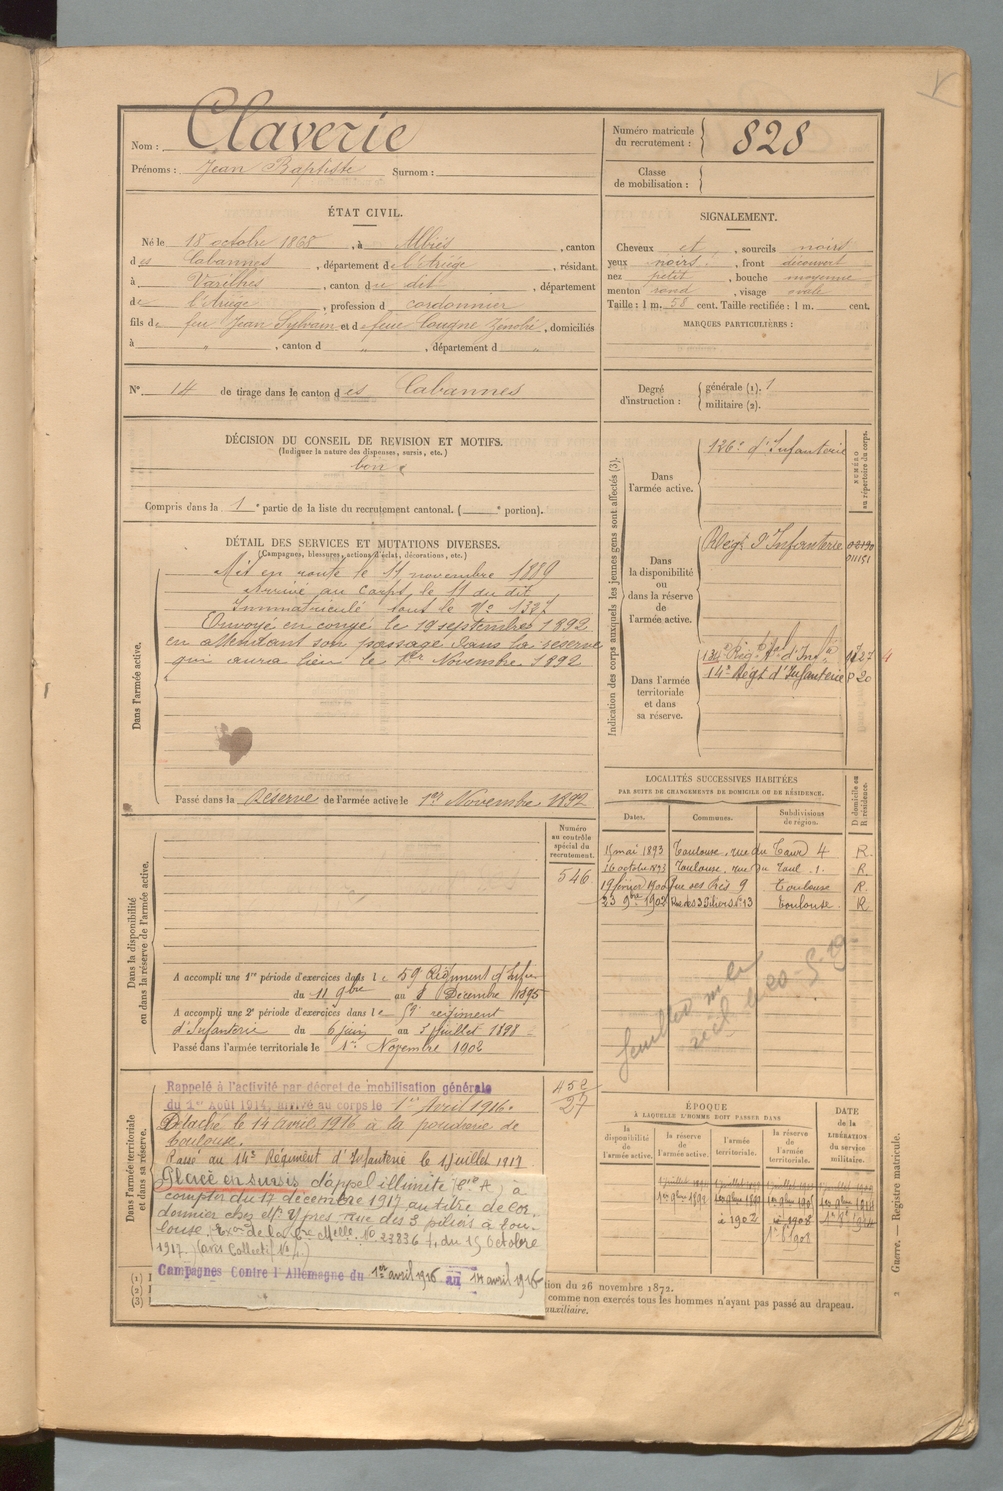 Nom : Claverie
Prénoms : Jean Baptiste Surnom :
Numéro matricule
du recrutement : 828
Classe
de mobilisation :
ÉTAT CIVIL.
Né le 18 octobre 1868, à Albiès, canton
des Cabannes, département de l'Ariège, résidant
à Varilhes, canton du dit, département
de l'Ariège, profession d cordonnier
fils de feu Jean Sylvain et de feue Cougne Zénobie, domiciliés
à " , canton d " , département d "
SIGNALEMENT.
Cheveux et, sourcils noirs
yeux noirs, front découvert
nez petit, bouche moyenne
menton rond, visage ovale
Taille : 1 m. 58 cent. Taille rectifiée : 1 m. cent.
MARQUES PARTICULIÈRES :
N° 14 de tirage dans le canton des Cabannes
Degré
d'instruction :
générale (1). 1
militaire (2).
DÉCISION DU CONSEIL DE REVISION ET MOTIFS.
(Indiquer la nature des dispenses, sursis, etc.)
bon
Compris dans la 1e partie de la liste du recrutement cantonal. ( e portion).
DÉTAIL DES SERVICES ET MUTATIONS DIVERSES.
(Campagnes, blessures, actions d'éclat, décorations, etc.)
Dans l'armée active.
Mis en route le 11 novembre 1889
Arrivé au corps le 11 du dit
Immatriculé sous le N°
Envoyé en congé le 19 septembre 1892
en attendant son passage dans la réserve
qui aura lieu le 1er Novembre 1892
Passé dans la Réserve de l'armée active le 1er Novembre 1892
Indication des corps auxquels les jeunes gens sont affectés (3).
NUMÉRO
au répertoire du corps.
Dans
l'armée active.
126e d'Infanterie
Dans
la disponibilité
ou
dans la réserve
de
l'armée active.
Régt d'Infanterie
Dans l'armée
territoriale
et dans
sa réserve.
134e Régt
14e Régt d'Infanterie P 20
LOCALITÉS SUCCESSIVES HABITÉES
PAR SUITE DE CHANGEMENTS DE DOMICILE OU DE RÉSIDENCE.
Dates. Communes. Subdivisions
de région.
D domicile ou
R résidence.
mai 1893 Toulouse, rue du Taur 4 R.
16 octobre Toulouse, rue du Taul 1. R.
19 février 1900 9 Toulouse R.
23 9bre 1902 Rue des 3 Piliers N° 13 Toulouse. R
Dans la disponibilité
ou dans la réserve de l'armée active.
Numéro
au contrôle
spécial du
recrutement.
546
A accompli une 1re période d'exercices dans le 59e Régiment d'Infie
du 11 9bre au 8 Décembre 1895
A accompli une 2e période d'exercices dans le 59 régiment
d'Infanterie du 6 juin au 3 juillet 1898
Passé dans l'armée territoriale le 1er Novembre 1902
Dans l'armée territoriale
et dans sa réserve.
452
27
Rappelé à l'activité par décret de mobilisation générale
du 1er Août 1914, arrivé au corps le 1er Avril 1916.
Détaché le 14 avril 1916 à la poudrerie de
Toulouse.
Passé au 14e Régiment d'Infanterie le 1 Juillet 1917
Placé en sursis d'appel illimité (Cie A) à
compter du 17 décembre 1917 au titre de cor-
donnier chez Mr Ypres rue des 3 piliers à Tou-
louse. de la Melle. No 23836 , du 15 Octobre
1917. (avis Collectif No )
Campagnes Contre l'Allemagne du 1er avril 1916 au 14 avril 1916
ÉPOQUE
À LAQUELLE L'HOMME DOIT PASSER DANS
la
disponibilité
de
l'armée active.
la réserve
de
l'armée active.
l'armée
territoriale.
la réserve
de
l'armée
territoriale.
DATE
DE LA
LIBÉRATION
du service
militaire.
1er 9bre 1892
à 1902 à 1908
(1) I
(2) I
(3) I
tion du 26 novembre 1872.
comme non exercés tous les hommes n'ayant pas passé au drapeau.
auxiliaire.
Guerre. — Registre matricule. 2